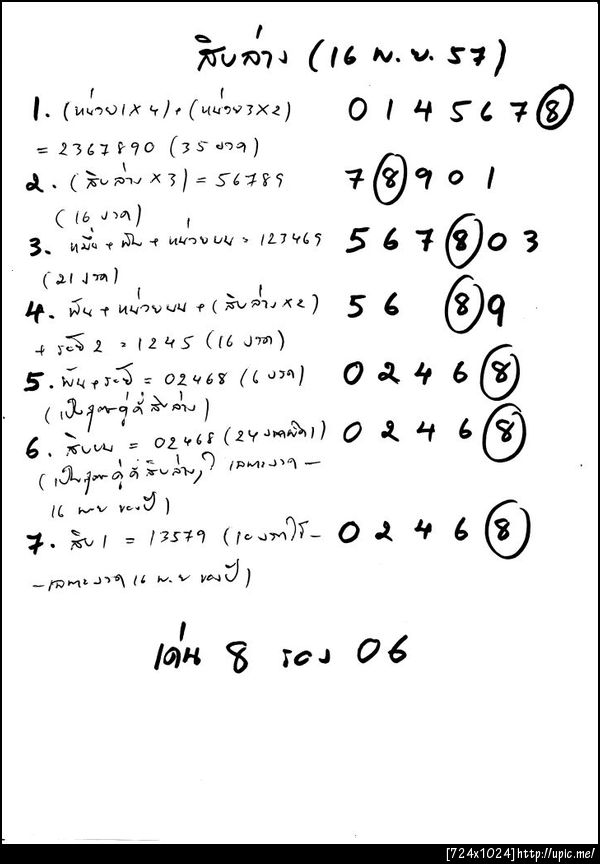 สิบล่าง (16 พ.ย. 57)
1. (หน่วย1X4)+(หน่วย3X2) 0 1 4 5 6 7 8
= 2367890 (35 งวด)
2. (สิบล่าง X3) = 56789 7 8 9 0 1
(16 งวด)
3. หมื่น + พัน + หน่วยบน = 123469 5 6 7 8 0 3
(21 งวด)
4. พัน + หน่วยบน + (สิบล่างX2) 5 6 8 9
+ 2 = 1245 (16 งวด)
5. พัน+ = 02468 (6 งวด) 0 2 4 6 8
(เป็นสูตรคู่คี่สิบล่าง)
6. สิบบน = 02468 (24 งวดผิด1) 0 2 4 6 8
(เป็นสูตรคู่คี่สิบล่าง, เฉพาะงวด –
16 พ.ย ของปี)
7. สิบ1 = 13579 ( 0 2 4 6 8
– เฉพาะงวด 16 พ.ย ของปี)
เด่น 8 รอง 06
[724x1024]http://upic.me/